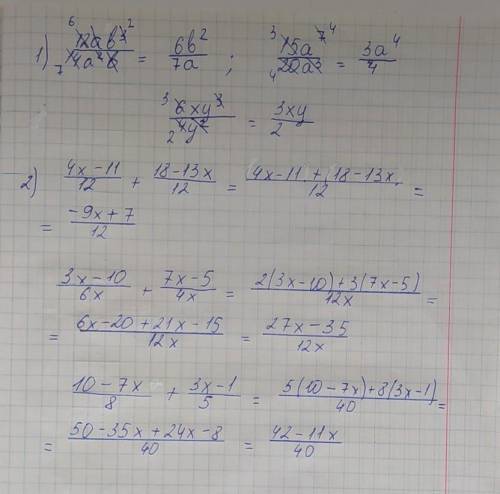 1) 12ab³/14a²b = 6b²/7a ; 15a⁷/20a³ = 3a⁴/4
6xy³/4y² = 3xy/2
2) (4x-11)/12 + (18-13x)/12 = (4x-11+18-13x)/12 =
= (-9x+7)/12
(3x-10)/6x + (7x-5)/4x = (2(3x-10)+3(7x-5))/12x =
= (6x-20+21x-15)/12x = (27x-35)/12x
(10-7x)/8 + (3x-1)/5 = (5(10-7x)+8(3x-1))/40 =
= (50-35x+24x-8)/40 = (42-11x)/40